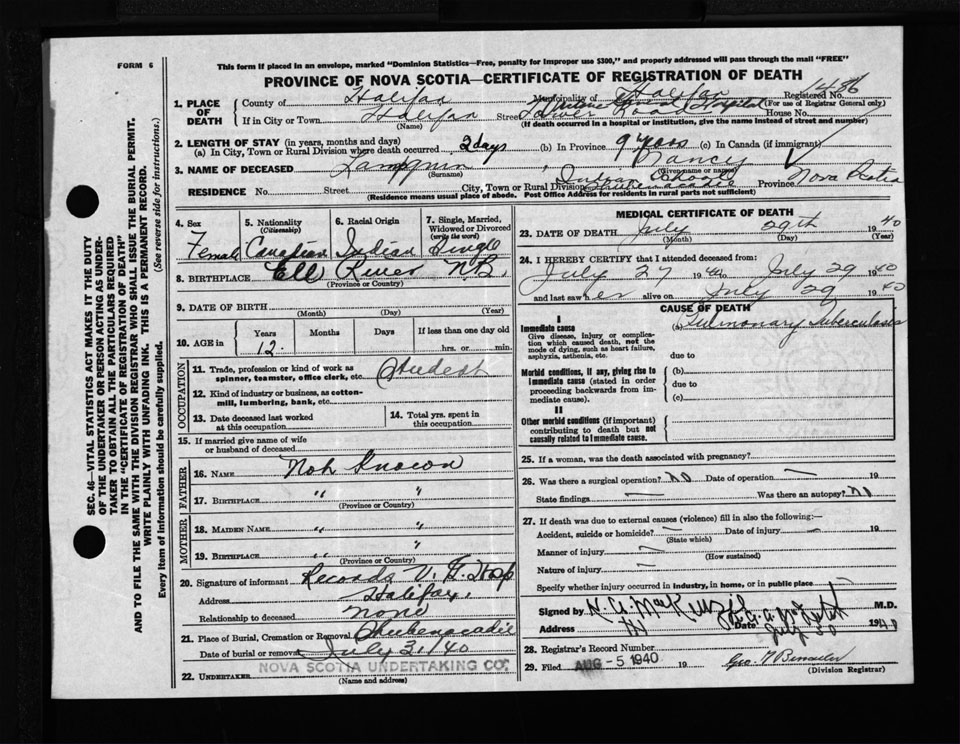 FORM 6
This form if placed in an envelope, marked "Dominion Statistics—Free, penalty for improper use $300," and properly addressed will pass through the mail "FREE"
PROVINCE OF NOVA SCOTIA—CERTIFICATE OF REGISTRATION OF DEATH
Registered No.
(For use of Registrar General only)
1. PLACE OF DEATH
County of Halifax Municipality of Halifax
If in City or Town Halifax Street Hospital House No.
(Name) (If death occurred in a hospital or institution, give the name instead of street and number)
2. LENGTH OF STAY (in years, months and days)
(a) In City, Town or Rural Division where death occurred 2 days (b) In Province 9 years (c) In Canada (if immigrant)
3. NAME OF DECEASED , Nancy
(Surname) (Given name or names)
RESIDENCE No. Street City, Town or Rural Division Indian School Shubenacadie Province Nova Scotia
(Residence means usual place of abode. Post Office Address for residents in rural parts not sufficient)
4. Sex
Female
5. Nationality
(Citizenship)
Canadian
6. Racial Origin
Indian
7. Single, Married, Widowed or Divorced
(write the word)
Single
8. BIRTHPLACE River N.B.
(Province or Country)
9. DATE OF BIRTH
(Month) (Day) (Year)
10. AGE in
Years Months Days If less than one day old
12 hrs. or min.
OCCUPATION
11. Trade, profession or kind of work as spinner, teamster, office clerk, etc. Student
12. Kind of industry or business, as cotton-mill, lumbering, bank, etc.
13. Date deceased last worked at this occupation
14. Total yrs. spent in this occupation
15. If married give name of wife or husband of deceased
FATHER
16. NAME Not Known
17. BIRTHPLACE " "
(Province or Country)
MOTHER
18. MAIDEN NAME " "
19. BIRTHPLACE " "
(Province or Country)
20. Signature of informant Records V. G. Hosp
Address Halifax,
Relationship to deceased none
21. Place of Burial, Cremation or Removal Shubenacadie
Date of burial or removal July 31/40
22. UNDERTAKER NOVA SCOTIA UNDERTAKING CO.
(Name and address)
MEDICAL CERTIFICATE OF DEATH
23. DATE OF DEATH July 29th 1940
(Month) (Day) (Year)
24. I HEREBY CERTIFY that I attended deceased from:
July 27 1940 to July 29 1940
and last saw her alive on July 29 1940
CAUSE OF DEATH
I
Immediate cause
Give disease, injury or complication which caused death, not the mode of dying, such as heart failure, asphyxia, asthenia, etc.
(a) Pulmonary Tuberculosis
due to
Morbid conditions, if any, giving rise to immediate cause (stated in order proceeding backwards from immediate cause).
(b)
due to
(c)
II
Other morbid conditions (if important) contributing to death but not causally related to immediate cause.
25. If a woman, was the death associated with pregnancy?
26. Was there a surgical operation? No Date of operation — 19
State findings — Was there an autopsy? No
27. If death was due to external causes (violence) fill in also the following:—
Accident, suicide or homicide? — Date of injury — 19
(State which)
Manner of injury —
(How sustained)
Nature of injury —
Specify whether injury occurred in industry, in home, or in public place
Signed by M.D.
Address Date July 30 1940
28. Registrar's Record Number
29. Filed AUG - 5 1940 19
(Division Registrar)
SEC. 46—VITAL STATISTICS ACT MAKES IT THE DUTY
OF THE UNDERTAKER OR PERSON ACTING AS UNDER-
TAKER TO OBTAIN ALL THE PARTICULARS REQUIRED
IN THE "CERTIFICATE OF REGISTRATION OF DEATH"
AND TO FILE THE SAME WITH THE DIVISION REGISTRAR WHO SHALL ISSUE THE BURIAL PERMIT.
WRITE PLAINLY WITH UNFADING INK. THIS IS A PERMANENT RECORD.
Every item of information should be carefully supplied. (See reverse side for instructions.)